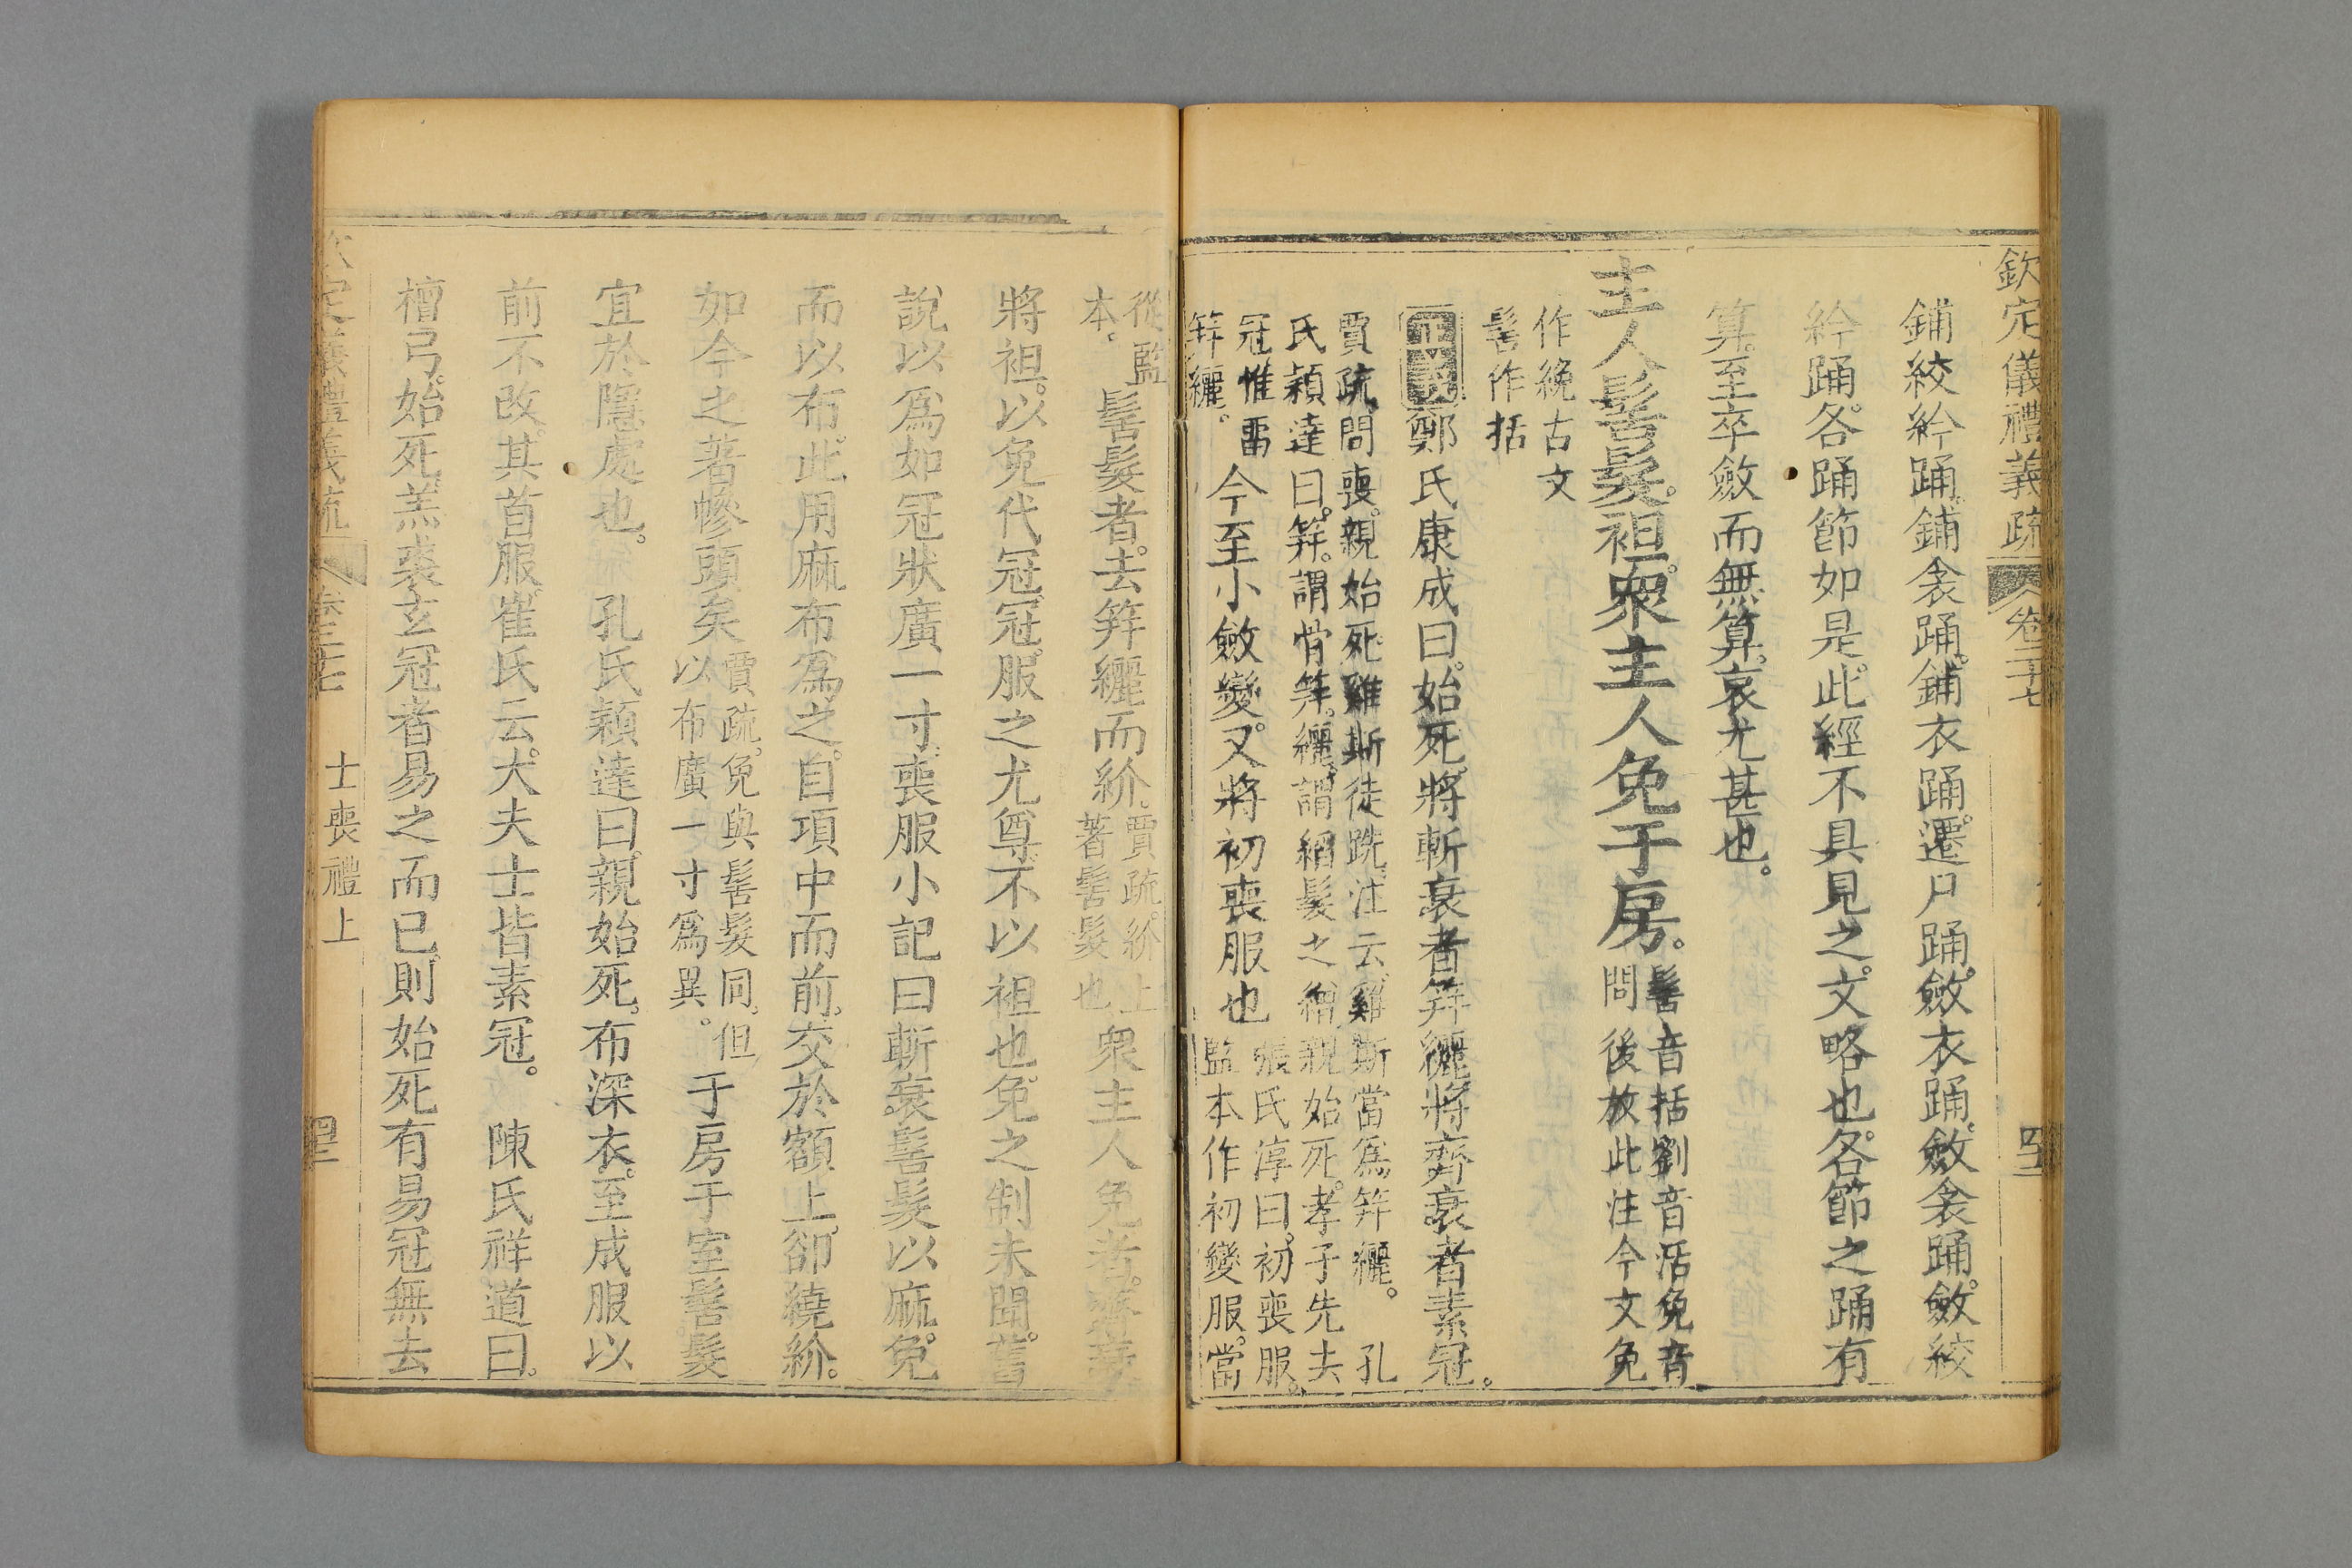 欽定儀禮義疏 卷二十七
鋪絞紟踊。鋪衾踊。鋪衣踊。遷尸踊。斂衣踊。斂衾踊。斂絞
紟踊。各踊節如是。此經不具見之。文略也。各節之踊有
算。至卒斂而無算。哀尤甚也。
主人髻髮。袒。衆主人免于房。髻音括劉音活免音
問後放此注今文免
作絻古文
髻作括
正義鄭氏康成曰。始死。將斬衰者筓纚。將齊衰者素冠。
賈疏。問喪。親始死。雞斯徒跣。注云。雞斯當爲筓纚。 孔
氏穎達曰。筓。謂骨筓。纚。謂縚髮之繒。親始死。孝子先去
冠。惟畱
筓纚。今至小斂變。又將初喪服也張氏淳曰。初喪服。
監本作初變服。當
從監
本。髻髮者。去筓纚而紒。賈疏。紒上
著髻髮也衆主人免者。齊衰
將袒。以免代冠。冠。服之尤尊。不以袒也。免之制未聞。舊
說以爲如冠狀廣一寸。喪服小記曰斬衰髻髮以麻。免
而以布。此用麻布爲之。自項中而前。交於額上。卻繞紒。
如今之著幓頭矣賈疏。免與髻髮同。但
以布廣一寸爲異。于房于室。髻髮
宜於隱處也。 孔氏穎達曰。親始死。布深衣。至成服以
前不改。其首服。崔氏云。大夫士皆素冠。 陳氏祥道曰。
檀弓。始死。羔裘玄冠者易之而已。則始死有易冠無去
卷二十七 士喪禮上